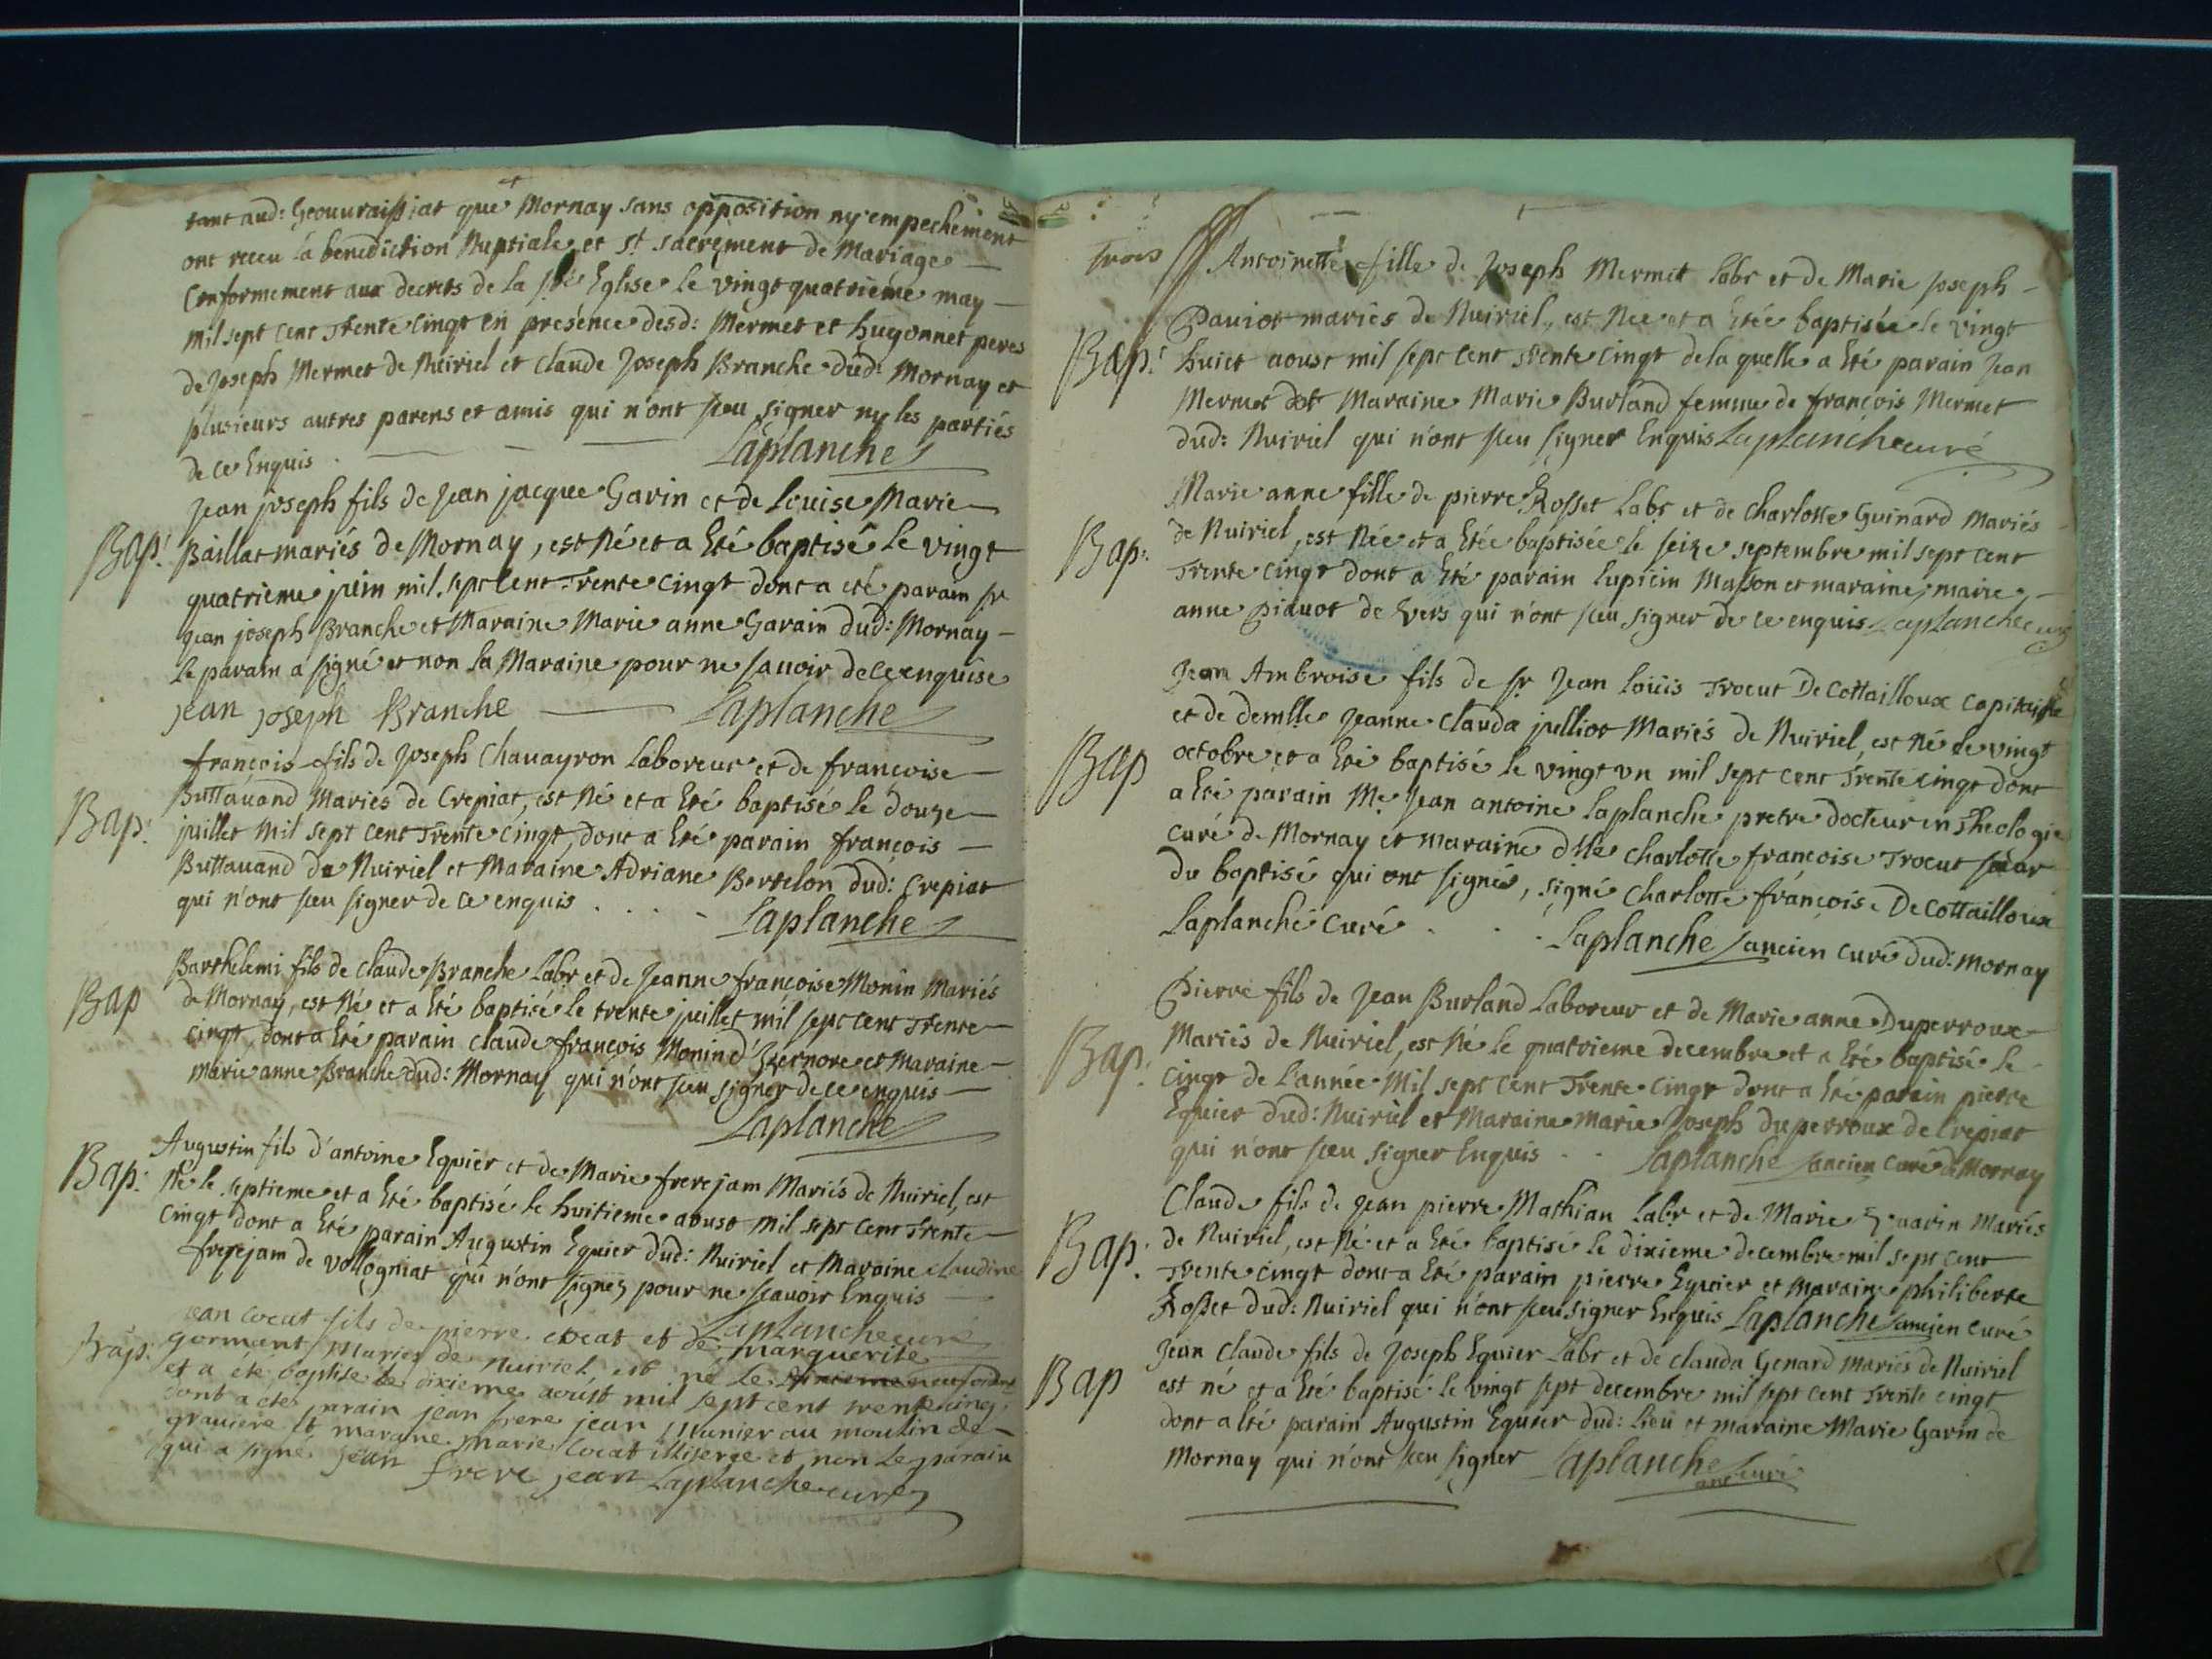 tant aud: Geouuraissiat que Mornay sans opposition ny empechement
ont receu la benediction Nuptiale et st sacrement de Mariage
Conformement aux decrets de la ste Eglise le vingt quatrieme may
mil sept cent Trente cingt en presence desd: Mermet et hugonnet peres
de Joseph Mermet de Nuiriel et Claude Joseph Branche dud: Mornay et
plusieurs autres parens et amis qui n'ont sceu signer ny les partiés
de ce Enquis Laplanche
Jean joseph fils de Jean jacque Garin et de Louise Marie
Bap: Baillat mariés de Mornay, est Né et a Eté baptisé le vingt
quatrieme juin mil sept Cent Trente cingt dont a eté parain sr
Jean joseph Branche et Maraine Marie anne Garain dud: Mornay
le parain a signé et non la Maraine pour ne sauoir de ce enquise
jean joseph Branche Laplanche
françois fils de Joseph Chauayron Laboreur et de francoise
Buttauand Mariés de Crepiat, est Né et a Eté baptisé le douze
Bap: juillet mil sept cent Trente cingt, dont a Eté parain françois
Buttauand de Nuiriel et Maraine Adriane Bertelon dud: Crepiat
qui n'ont sceu signer de ce enquis Laplanche
Barthelemi fils de claude Branche Labr et de Jeanne françoise Monin Mariés
Bap de Mornay, est Né et a Eté baptisé le trente juillet mil sept cent Trente
cingt, dont a Eté parain claude françois Monin d'Izernore et Maraine
marie anne Branche dud: Mornay qui n'ont sceu signer de ce enquis
Laplanche
Augustin fils d'antoine Equier et de Marie frerejam Mariés de Nuiriel, est
Bap: Né le septieme et a Eté baptisé le huitieme aoust mil sept cent Trente
Cingt dont a Eté parain Augustin Equier dud: Nuiriel et Maraine claudine
frerejam de vollogniat qui n'ont signez pour ne sçauoir Enquis
Laplanche curé
jean cocat fils de pierre cocat et de marguerite
Bap: gormant mariés de nuiriel est né le neuf
et a ete baptise le dixieme aoust mil sept cent trente cinq
dont a eté parain jean frere jean au moulin de
grauiere et maraine marie Cocat illiserée et non le parain
qui a signé jean frere jean Laplanche curé
trois Antoinette fille de Joseph Mermet Labr et de Marie Joseph
Pauiot mariés de Nuiriel, est Née et a Etée baptisée le vingt
Bap: huict aoust mil sept cent trente cingt de la quelle a Eté parain Jean
Mermet et Maraine Marie Burland femme de françois Mermet
dud: Nuiriel qui n'ont sceu signer Enquis Laplanche curé
Marie anne fille de pierre Rosset Labr et de Charlotte Guinard Mariés
Bap: de Nuiriel, est Née et a Etée baptisée le seize septembre mil sept cent
Trente cingt dont a Eté parain lupicin Masson et maraine marie
anne Piduot de Vers qui n'ont sceu signer de ce enquis Laplanche curé
Jean Ambroise fils de sr Jean Loüis Trocut De Cottailloux Capitaine
et de demlle Jeanne Clauda julliot Mariés de Nuiriel, est Né le vingt
Bap octobre et a Eté baptisé le vingt vn mil sept cent Trente cingt dont
a Eté parain Me Jean antoine Laplanche pretre docteur en Theologie
curé de Mornay et maraine dlle Charlotte francoise Trocut soeur
du baptisé qui ont signés, signé Charlotte françoise De Cottailloux
Laplanche Curé Laplanche ancien curé dud: Mornay
Pierre fils de Jean Burland Laboreur et de Marie anne Duperroux
Mariés de Nuiriel, est Né le quatrieme decembre et a Eté baptisé le
Bap: cingt de L'année Mil sept cent Trente cingt dont a Eté parain pierre
Equier dud: Nuiriel et Maraine marie Joseph duperroux de Crepiat
qui n'ont sceu signer Enquis Laplanche ancien curé de Mornay
Claude fils de Jean pierre Mathian Labr et de Marie Mariés
Bap: de Nuiriel, est Né et a Eté baptisé le dixieme decembre mil sept cent
Trente cingt dont a Eté parain pierre Equier et maraine philiberte
Rosset dud: Nuiriel qui n'ont sceu signer Enquis Laplanche ancien curé
Jean Claude fils de Joseph Equier Labr et de clauda Genard mariés de Nuiriel
Bap est né et a Eté baptisé le vingt sept decembre mil sept cent Trente cingt
dont a Eté parain Augustin Equier dud: Lieu et maraine Marie Garin de
Mornay qui n'ont sceu signer Laplanche
anc curé